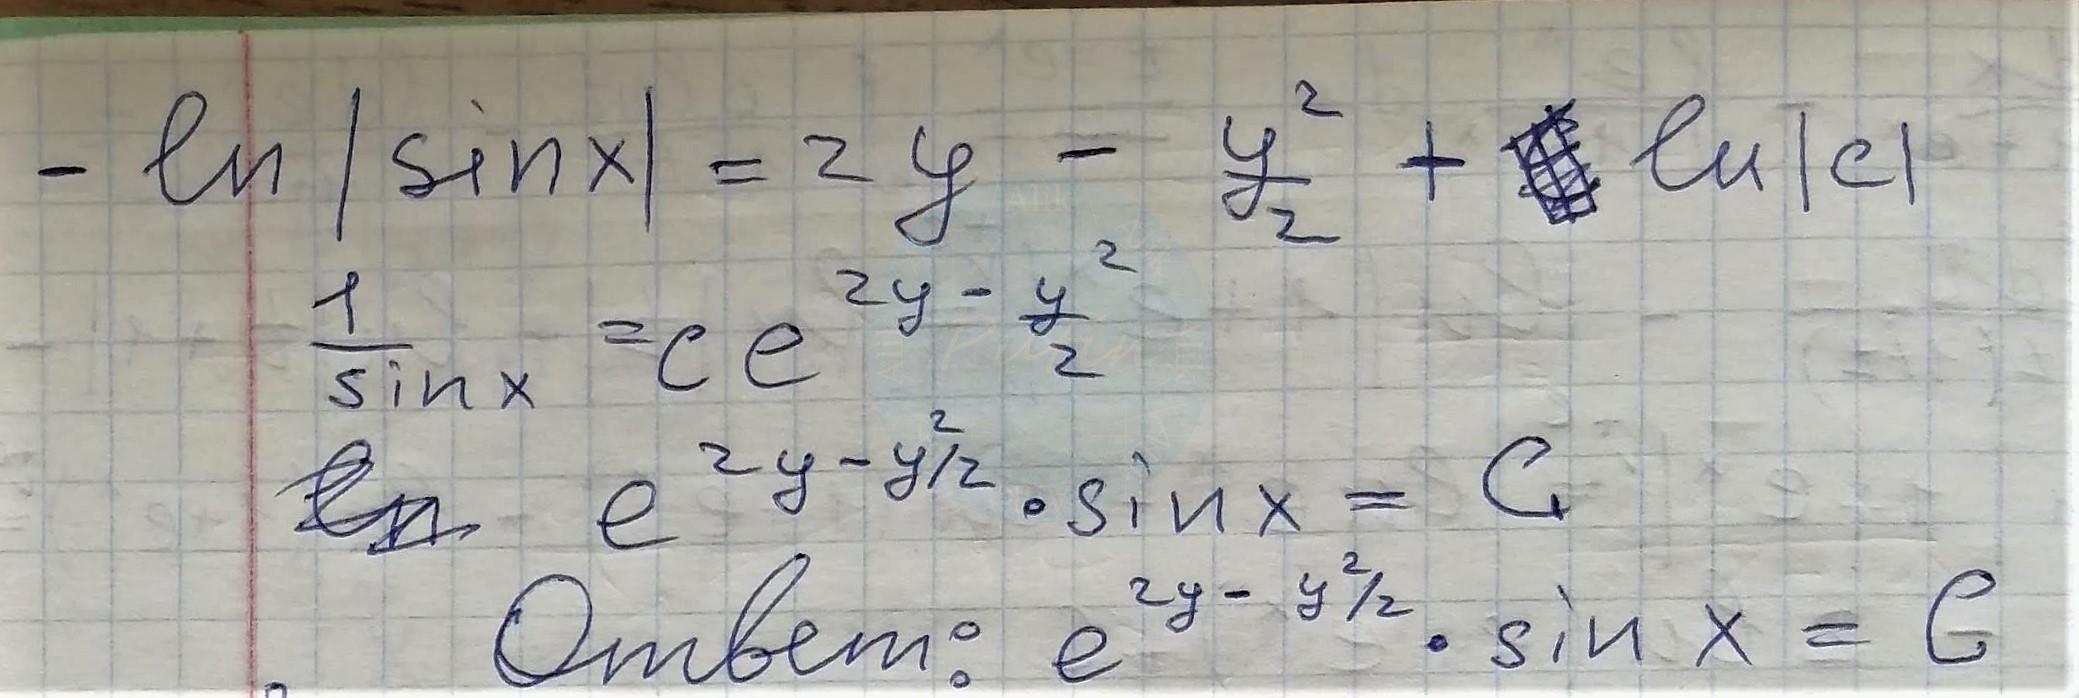 - ln |sin x| = 2y - y²/2 + ln|c|
1/sin x = c e^(2y - y²/2)
e^(2y - y²/2) · sin x = C
Ответ: e^(2y - y²/2) · sin x = C